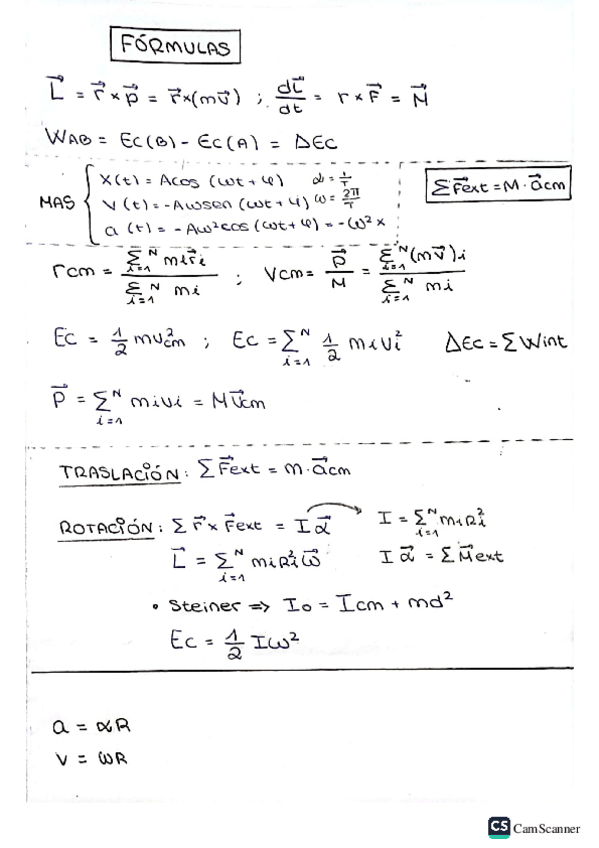 FÓRMULAS
L⃗ = r⃗ × p⃗ = r⃗ × (mv⃗) ; dL⃗/dt = r × F⃗ = M⃗
WAB = Ec(B) - Ec(A) = ΔEc
MAS { X(t) = Acos (ωt + φ) ν = 1/T
V(t) = -Aωsen (ωt + φ) ω = 2π/T
a (t) = -Aω²cos (ωt + φ) = -ω² x
ΣF⃗ext = M · a⃗cm
rcm = Σᵢ₌₁ᴺ mi r⃗i / Σᵢ₌₁ᴺ mi ; Vcm = P⃗/M = Σᵢ₌₁ᴺ (mv⃗)i / Σᵢ₌₁ᴺ mi
Ec = 1/2 mv²cm ; Ec = Σᵢ₌₁ᴺ 1/2 mi vi² ΔEc = ΣWint
P⃗ = Σᵢ₌₁ᴺ mivi = Mv⃗cm
TRASLACIÓN: ΣF⃗ext = m · a⃗cm
ROTACIÓN: Σ r⃗ × F⃗ext = I α⃗ I = Σᵢ₌₁ᴺ mi Ri²
L⃗ = Σᵢ₌₁ᴺ mi Ri² ω⃗ I α⃗ = ΣM⃗ext
• Steiner => Io = Icm + md²
Ec = 1/2 Iω²
a = αR
v = ωR
CS CamScanner